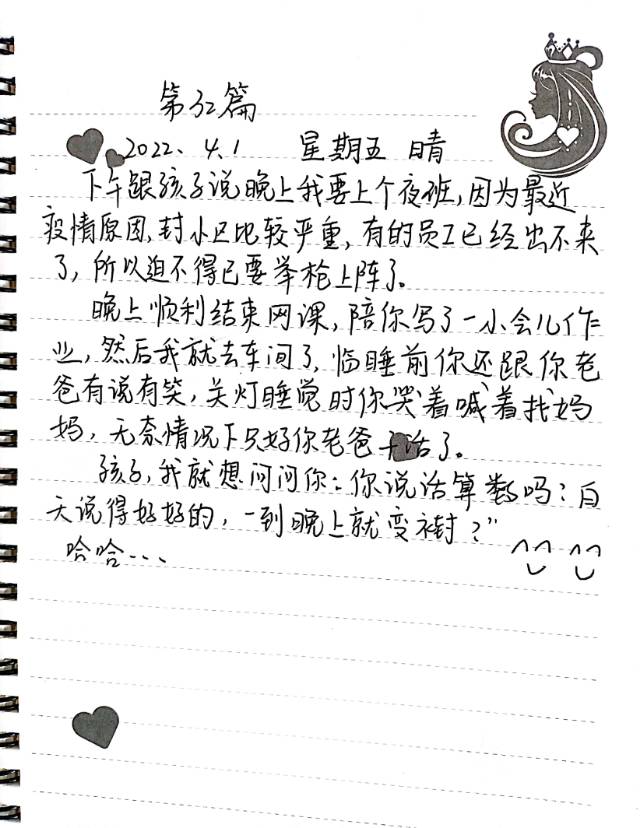 第32篇
2022、4.1 星期五 晴
下午跟孩子说晚上我要上个夜班,因为最近
疫情原因,封小区比较严重,有的员工已经出不来
了,所以迫不得已要举枪上阵了。
晚上顺利结束网课,陪你写了一小会儿作
业,然后我就去车间了,临睡前你还跟你老
爸有说有笑,关灯睡觉时你哭着喊着找妈
妈,无奈情况下只好你老爸干活了。
孩子,我就想问问你:你说话算数吗?白
天说得好好的,一到晚上就变卦?”
哈哈...